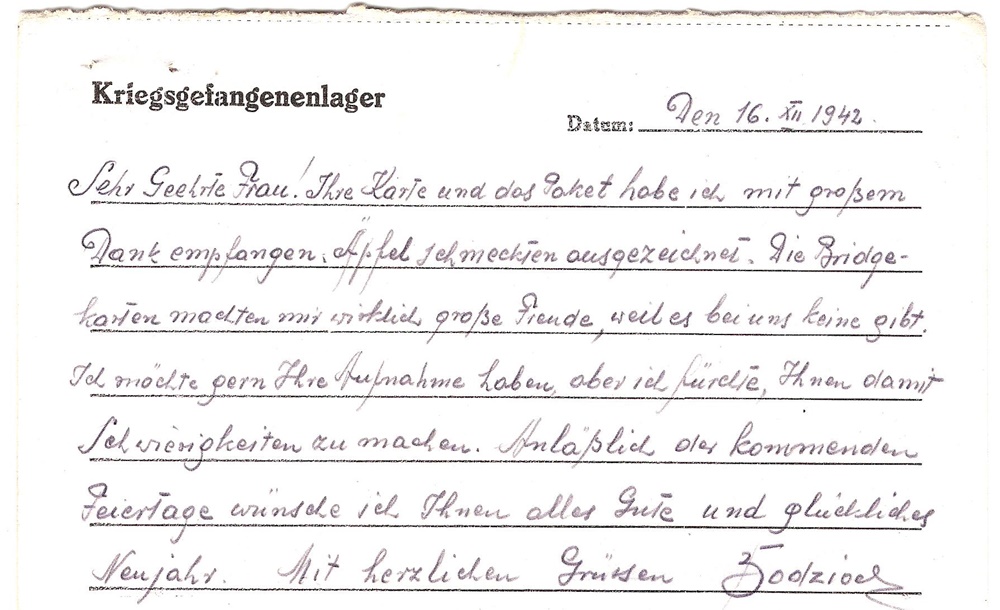 Kriegsgefangenenlager
Datum: Den 16. XII 1942.
Sehr Geehrte Frau! Ihre Karte und das Paket habe ich mit großem
Dank empfangen. Äpfel schmeckten ausgezeichnet. Die Bridge-
karten machten mir wirklich große Freude, weil es bei uns keine gibt.
Ich möchte gern Ihre Aufnahme haben, aber ich fürchte, Ihnen damit
Schwierigkeiten zu machen. Anläßlich der kommenden
Feiertage wünsche ich Ihnen alles Gute und glückliches
Neujahr. Mit herzlichen Grüssen